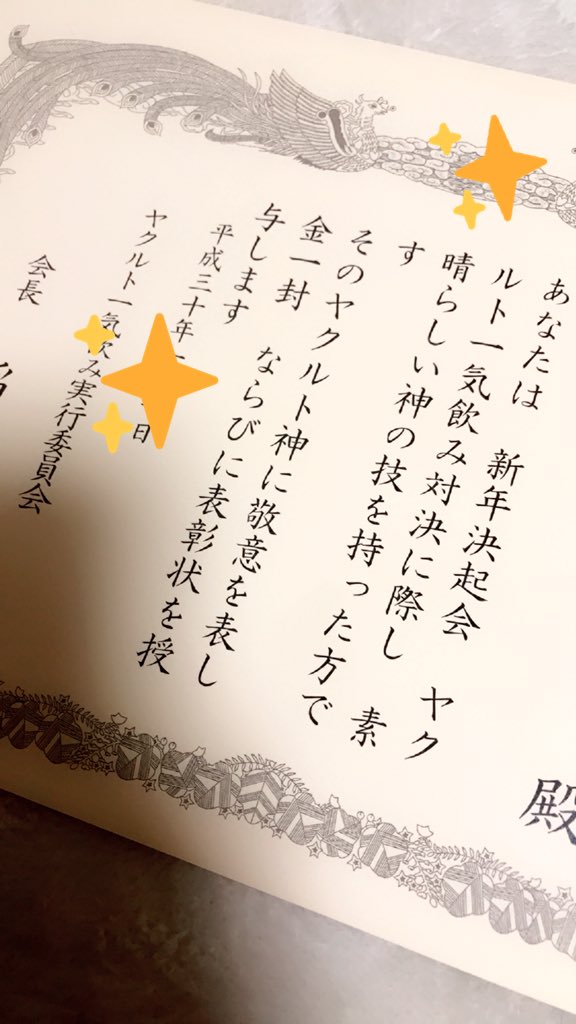 殿
あなたは　新年決起会　ヤク
ルト一気飲み対決に際し　素
晴らしい神の技を持った方で
す
そのヤクルト神に敬意を表し
金一封　ならびに表彰状を授
与します
平成三十年一 日
ヤクルト一気飲み実行委員会
会長